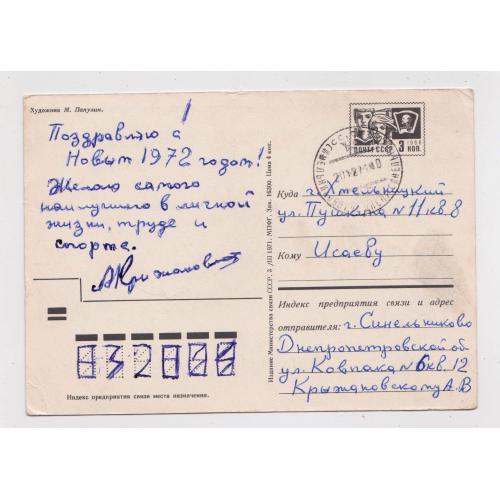 Художник М. Папулин.
Поздравляю с
Новым 1972 годом!
Желаю самого
наилучшего в личной
жизни, труде и
спорте.
АКрижановский
ПОЧТА СССР 3 КОП. 1966
Куда г. Хмельницкий
ул. Пушкина N 11 кв. 8
Кому Исаеву
Индекс предприятия связи и адрес
отправителя: г. Синельниково
Днепропетровской об
ул. Ковпака N 6 кв. 12
Крыжановскому А. В
Издание Министерства связи СССР. 3 /III 1971. МПФГ. Зак. 16200. Цена 4 коп.
Индекс предприятия связи места назначения.